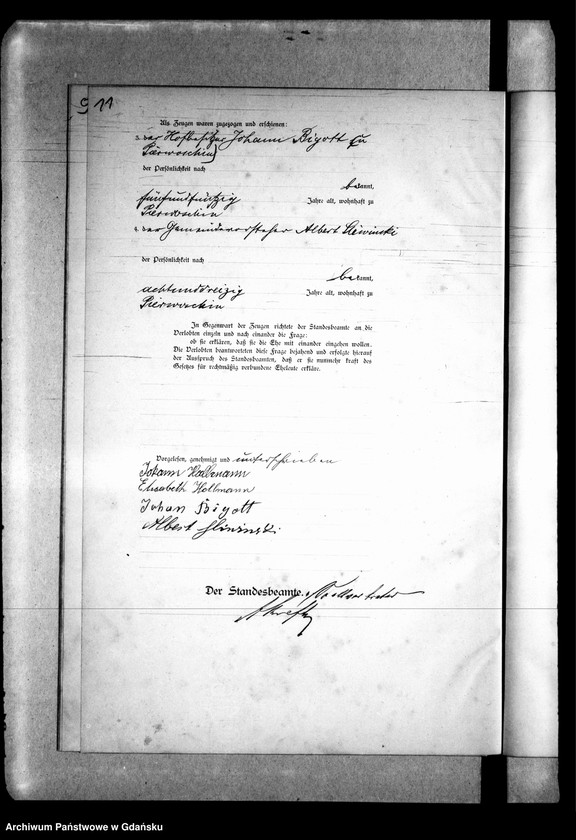 911
Als Zeugen waren zugezogen und erschienen:
3. der Hofbesitzer Johann Bigott zu
Pierwoschin
der Persönlichkeit nach
bekannt,
fünfundfünfzig Jahre alt, wohnhaft zu
Pierwoschin
4. der Gemeindevorsteher Albert Sliwinski
der Persönlichkeit nach
bekannt,
achtunddreizig Jahre alt, wohnhaft zu
Pierwoschin
In Gegenwart der Zeugen richtete der Standesbeamte an die
Verlobten einzeln und nach einander die Frage:
ob sie erklären, daß sie die Ehe mit einander eingehen wollen.
Die Verlobten beantworteten diese Frage bejahend und erfolgte hierauf
der Ausspruch des Standesbeamten, daß er sie nunmehr kraft des
Gesetzes für rechtmäßig verbundene Eheleute erkläre.
Vorgelesen, genehmigt und unterschrieben
Johann Hallmann
Elisabeth Hallmann
Johan Bigott
Albert Sliwinski
Der Standesbeamte.
Archiwum Państwowe w Gdańsku